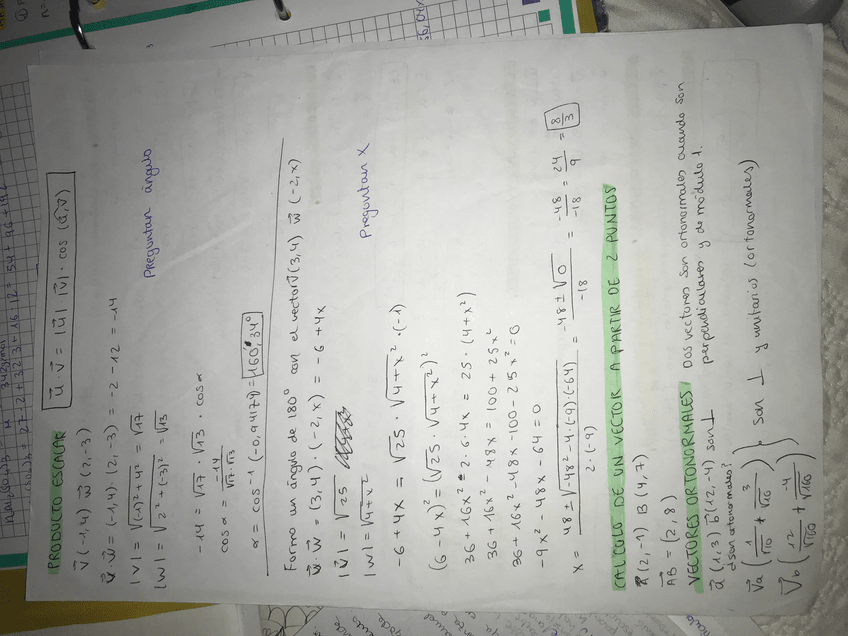 PRODUCTO ESCALAR
u⃗ · v⃗ = |u⃗| |v⃗| · cos (u⃗, v⃗)
v⃗ (-1,4) w⃗ (2,-3)
v⃗ · w⃗ = (-1,4) · (2,-3) = -2 -12 = -14
|v| = √(-1)²+4² = √17
|w| = √2²+(-3)² = √13
Preguntan ángulo
-14 = √17 · √13 · cos α
cos α = -14/√17·√13
α = cos⁻¹ (-0,94174) = 160,34°
Forma un ángulo de 180° con el vector v⃗(3,4) w⃗ (-2,x)
v⃗ · w⃗ = (3,4) · (-2,x) = -6 + 4x
|v⃗| = √25
|w| = √4+x²
Preguntan x
-6+4x = √25 · √4+x² · (-1)
(6-4x)² = (√25 · √4+x²)²
36 + 16x² - 2·6·4x = 25 · (4+x²)
36 + 16x² - 48x = 100 + 25x²
36 + 16x² - 48x - 100 - 25x² = 0
-9x² - 48x - 64 = 0
x = 48 ± √-48² - 4·(-9)·(-64) / 2·(-9) = -48 ± √0 / -18 = -48/-18 = 24/9 = 8/3
CALCULO DE UN VECTOR A PARTIR DE 2 PUNTOS
A (2,-1) B (4,7)
AB⃗ = (2,8)
VECTORES ORTONORMALES Dos vectores son ortonormales cuando son
perpendiculares y de módulo 1.
a⃗ (1,3) b⃗ (12,-4) son ⊥
¿son ortonormales?
V⃗a (1/√10 + 3/√10)
V⃗b (12/√160 + -4/√160)
} son ⊥ y unitarios (ortonormales)